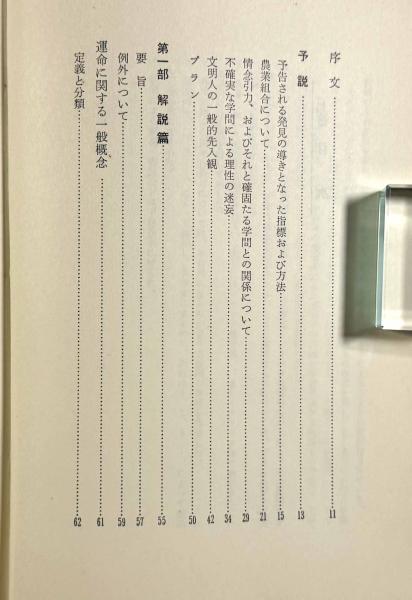 序文……………11
予説……………13
予告される発見の導きとなった指標および方法……………15
農業組合について……………21
情念引力、およびそれと確固たる学問との関係について……………29
不確実な学問による理性の迷妄……………34
文明人の一般的先入観……………42
プラン……………50
第一部 解説篇……………55
要旨……………57
例外について……………59
運命に関する一般概念……………61
定義と分類……………62